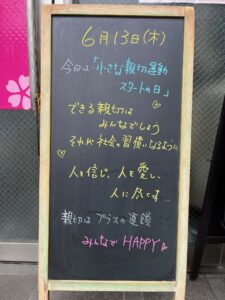 6月13日(木)
今日は「小さな親切運動
スタートの日」
できる親切は
みんなでしょう
それが社会の習慣になるように
人を信じ、人を愛し、
人に尽す…
親切はプラスの連鎖
みんなで HAPPY